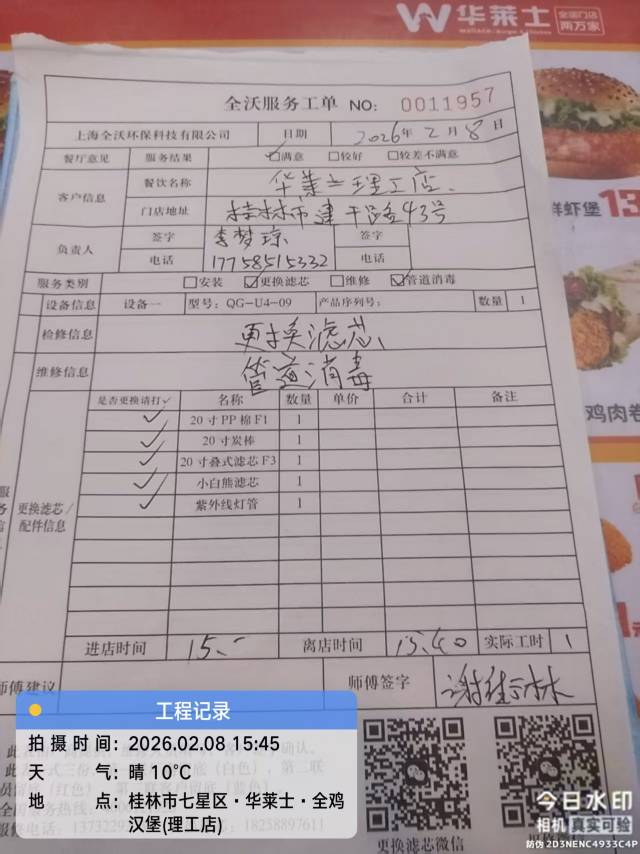 华莱士
Wallace·Burger & Chicken
全国门店
两万家
全沃服务工单 NO: 0011957
上海全沃环保科技有限公司 日期 2026年2月8日
餐厅意见 服务结果 ☑满意 □较好 □较差不满意
客户信息 餐饮名称 华莱士理工店
门店地址 桂林市建干路43号
负责人 签字 李梦琼 签字
电话 17758515332 电话
服务类别 □安装 ☑更换滤芯 □维修 ☑管道消毒
设备信息 设备一 型号: QG-U4-09 产品序列号: 数量 1
检修信息 更换滤芯、
维修信息 管道消毒
是否更换请打✓ 名称 数量 单价 合计 备注
✓ 20寸PP棉F1 1
✓ 20寸炭棒 1
✓ 20寸叠式滤芯F3 1
✓ 小白熊滤芯 1
✓ 紫外线灯管 1
更换滤芯/
配件信息
进店时间 15.- 离店时间 15.40 实际工时 1
师傅建议 师傅签字
更换滤芯微信
鲜虾堡 13
鸡肉卷
工程记录
拍摄时间: 2026.02.08 15:45
天 气: 晴 10℃
地 点: 桂林市七星区·华莱士·全鸡
汉堡(理工店)
今日水印
相机 真实可验
防伪 2D3NENC4933C4P